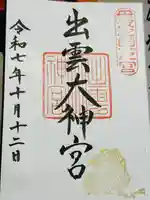 出雲大神宮
令和七年十月十二日